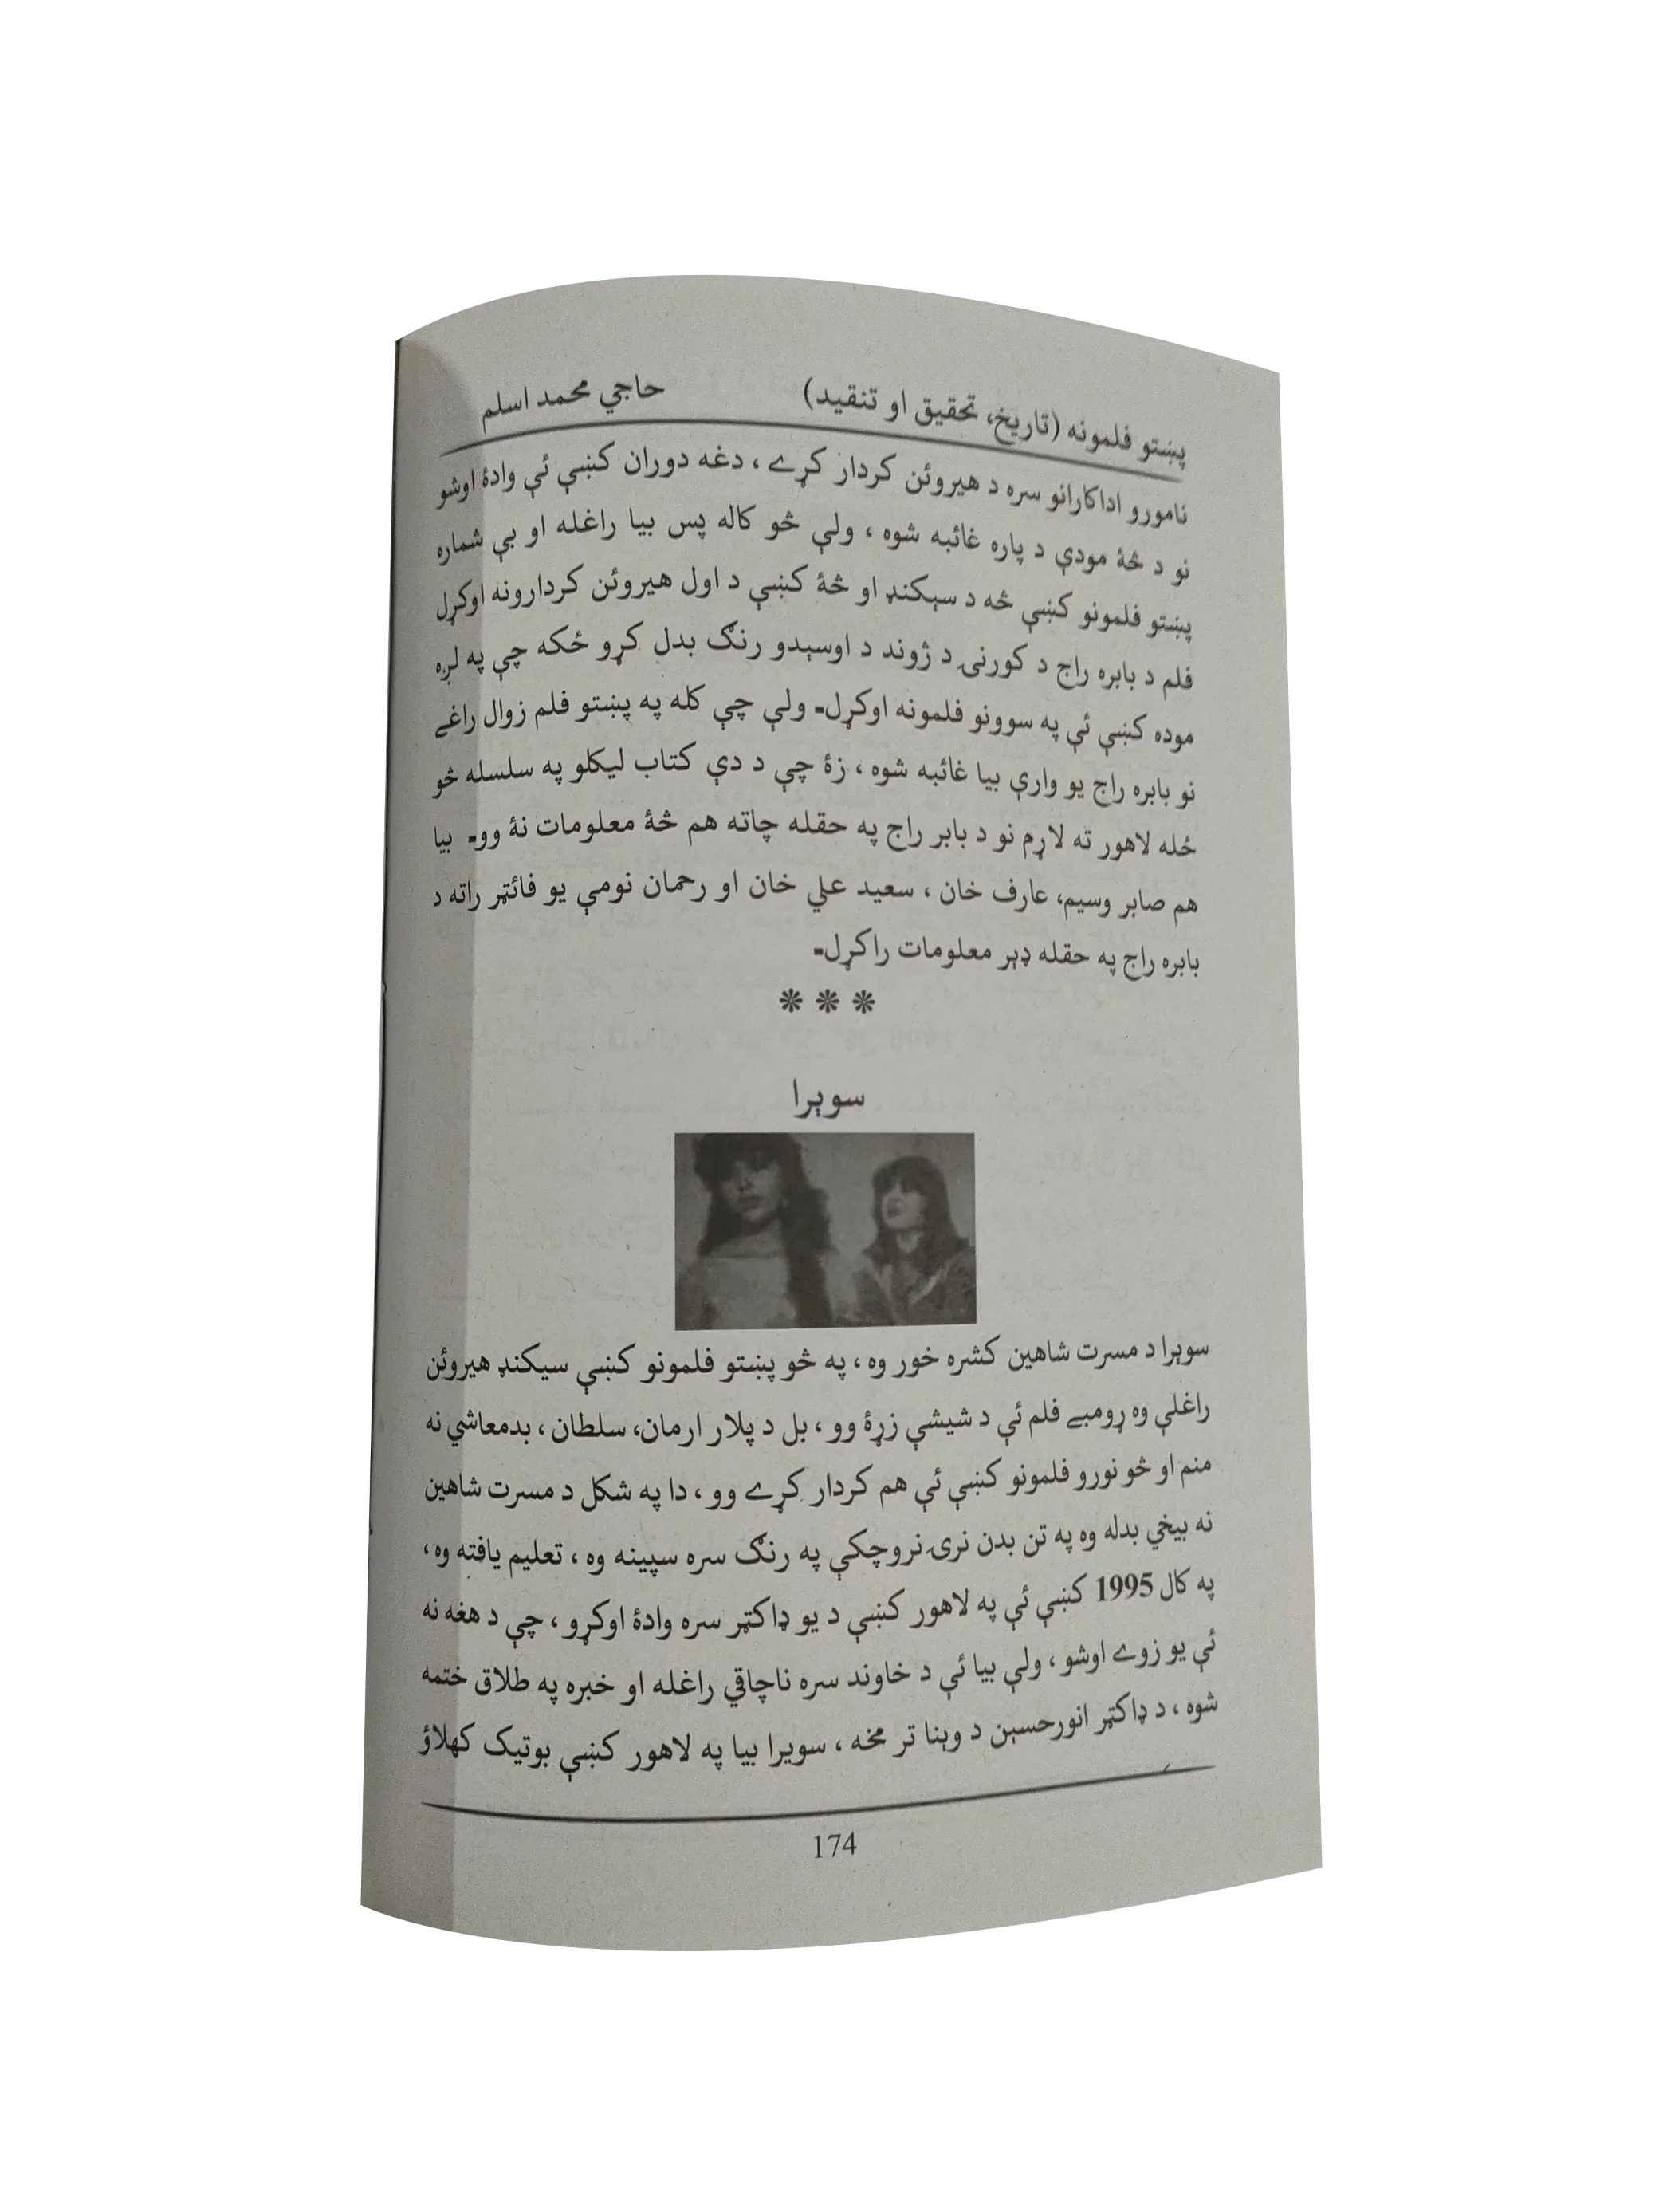 پښتو فلمونه (تاريخ، تحقيق او تنقيد) حاجي محمد اسلم
نامورو اداکارانو سره د هيروئن کردار کړے ، دغه دوران کښې ئې وادۀ اوشو
نو د څۀ مودې د پاره غائبه شوه ، ولې څو کاله پس بيا راغله او بې شماره
پښتو فلمونو کښې څه د سېکنډ او څۀ کښې د اول هيروئن کردارونه اوکړل
فلم د بابره راج د کورنۍ د ژوند د اوسېدو رنګ بدل کړو ځکه چې په لږه
موده کښې ئې په سوونو فلمونه اوکړل۔ ولې چې کله په پښتو فلم زوال راغے
نو بابره راج يو وارې بيا غائبه شوه ، زۀ چې د دې کتاب ليکلو په سلسله څو
ځله لاهور ته لاړم نو د بابر راج په حقله چاته هم څۀ معلومات نۀ وو۔ بيا
هم صابر وسيم، عارف خان ، سعيد علي خان او رحمان نومې يو فائټر راته د
بابره راج په حقله ډېر معلومات راکړل۔
❊ ❊ ❊
سوېرا
سوېرا د مسرت شاهين کشره خور وه ، په څو پښتو فلمونو کښې سيکنډ هيروئن
راغلې وه ړومبے فلم ئې د شيشې زړۀ وو ، بل د پلار ارمان، سلطان ، بدمعاشي نه
منم او څو نورو فلمونو کښې ئې هم کردار کړے وو ، دا په شکل د مسرت شاهين
نه بيخي بدله وه په تن بدن نرۍ نروچکې په رنګ سره سپينه وه ، تعليم يافته وه ،
په کال 1995 کښې ئې په لاهور کښې د يو ډاکټر سره وادۀ اوکړو ، چې د هغه نه
ئې يو زوے اوشو ، ولې بيا ئې د خاوند سره ناچاقي راغله او خبره په طلاق ختمه
شوه ، د ډاکټر انورحسېن د وېنا تر مخه ، سويرا بيا په لاهور کښې بوتيک کهلاؤ
174